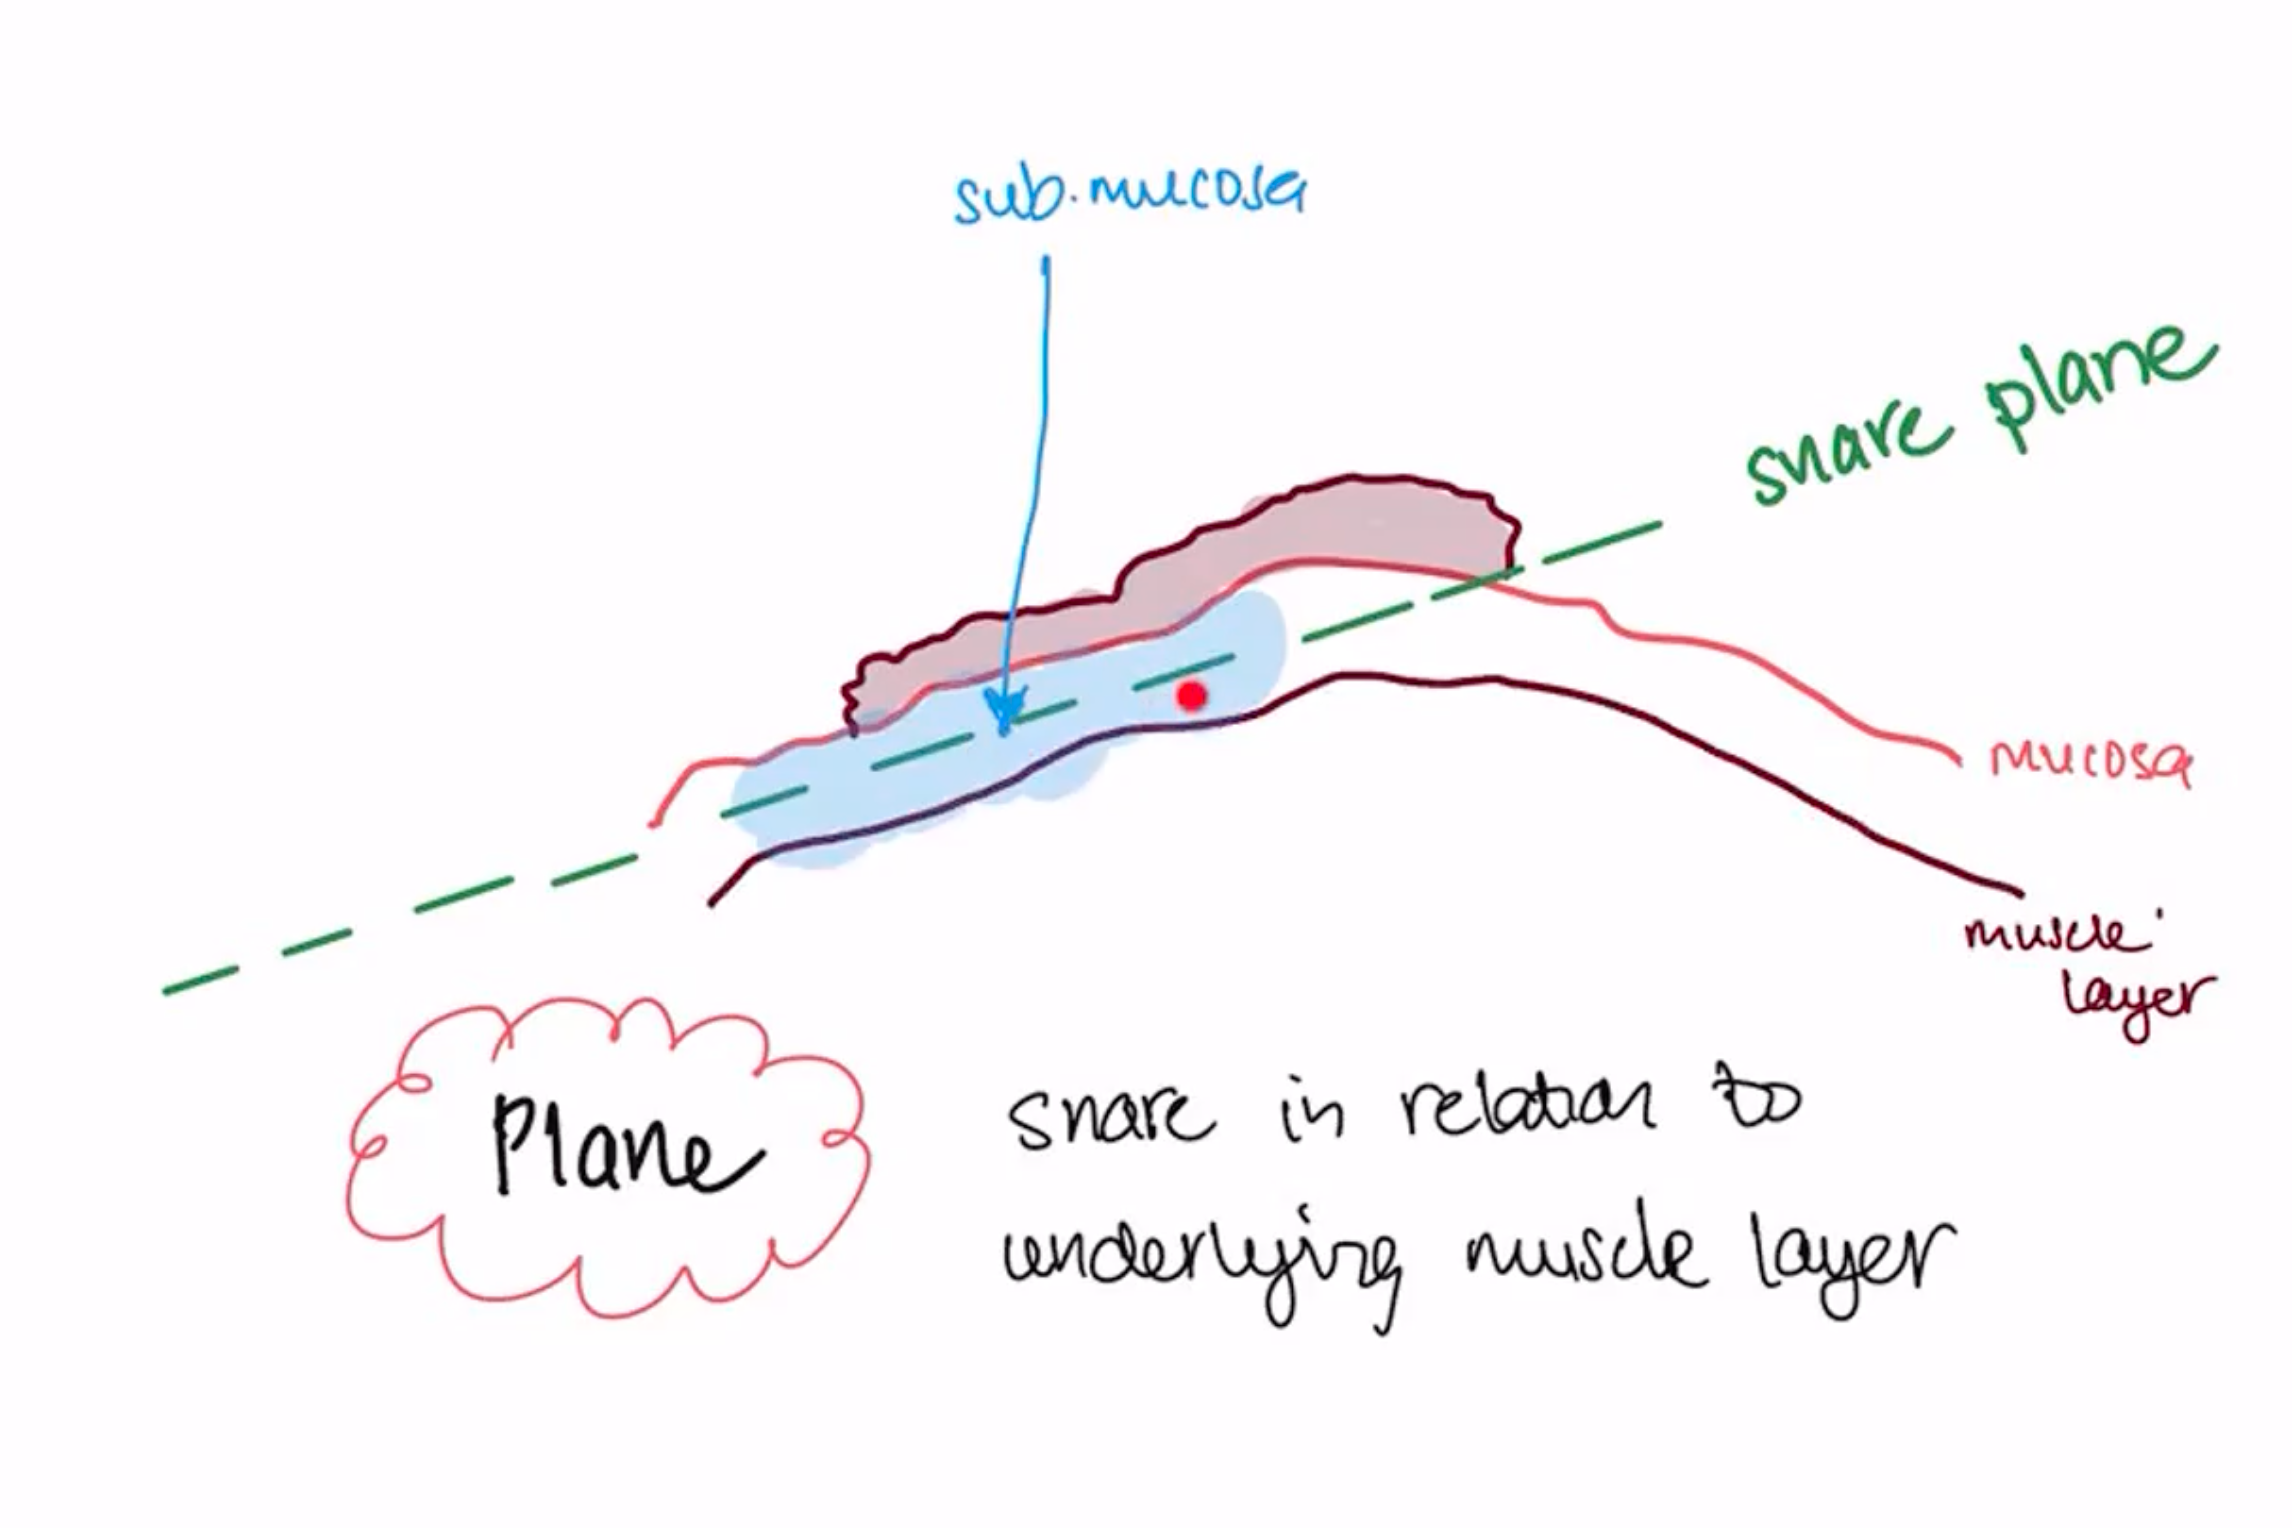 sub.mucosa
snare plane
mucosa
muscle
layer
Plane
snare in relation to
underlying muscle layer